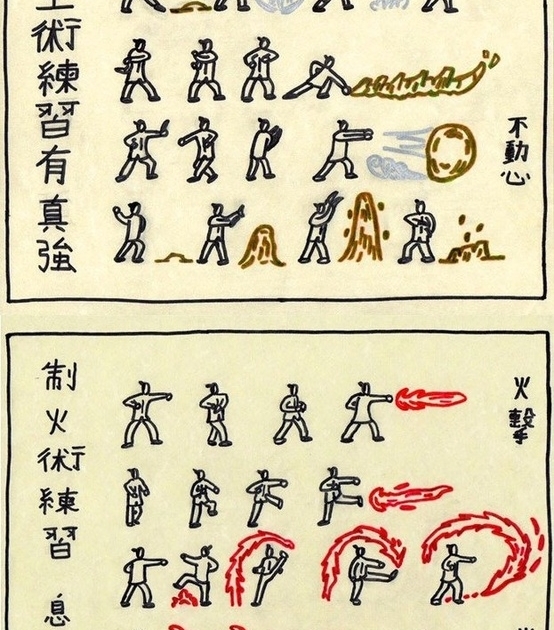 術練習有真強
不動心
制火術練習 息
火擊